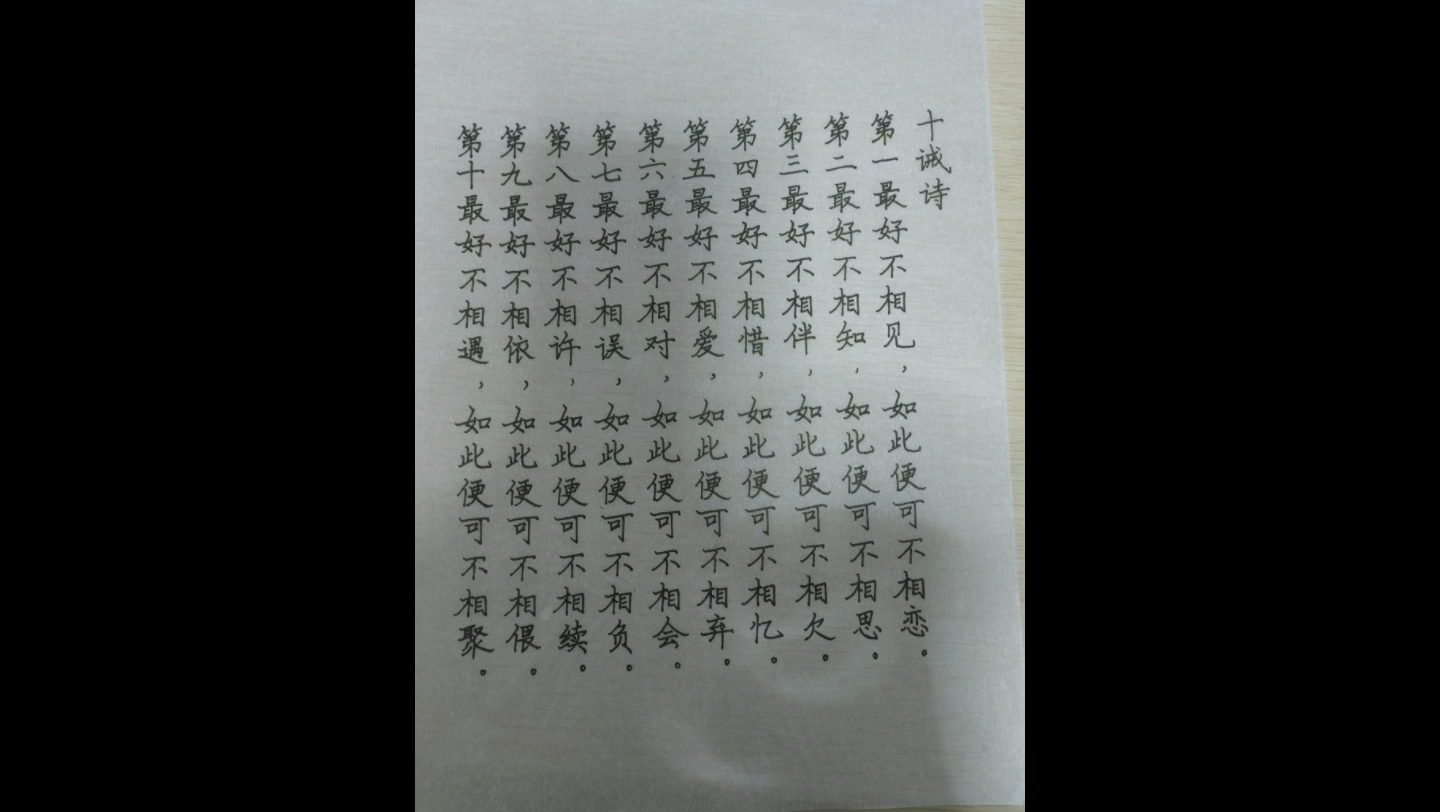 十诫诗
第一最好不相见，如此便可不相恋。
第二最好不相知，如此便可不相思。
第三最好不相伴，如此便可不相欠。
第四最好不相惜，如此便可不相忆。
第五最好不相爱，如此便可不相弃。
第六最好不相对，如此便可不相会。
第七最好不相误，如此便可不相负。
第八最好不相许，如此便可不相续。
第九最好不相依，如此便可不相偎。
第十最好不相遇，如此便可不相聚。